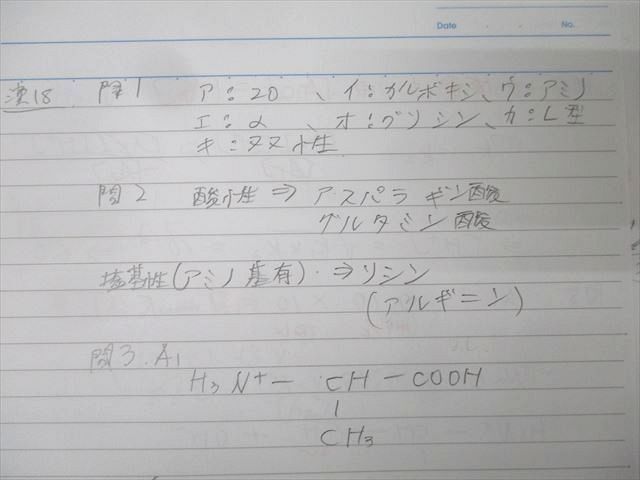 Date . . No.
演18 問1 ア:20 、イ:カルボキシ、ウ:アミノ
エ:α 、オ:グリシン、カ:L型
キ:ヌヌ性
問2 酸性 ⇒ アスパラギン酸
グルタミン酸
塩基性(アミノ基有) ⇒ リシン
(アルギニン)
問3. A1
H3N+ – CH – COOH
|
CH3